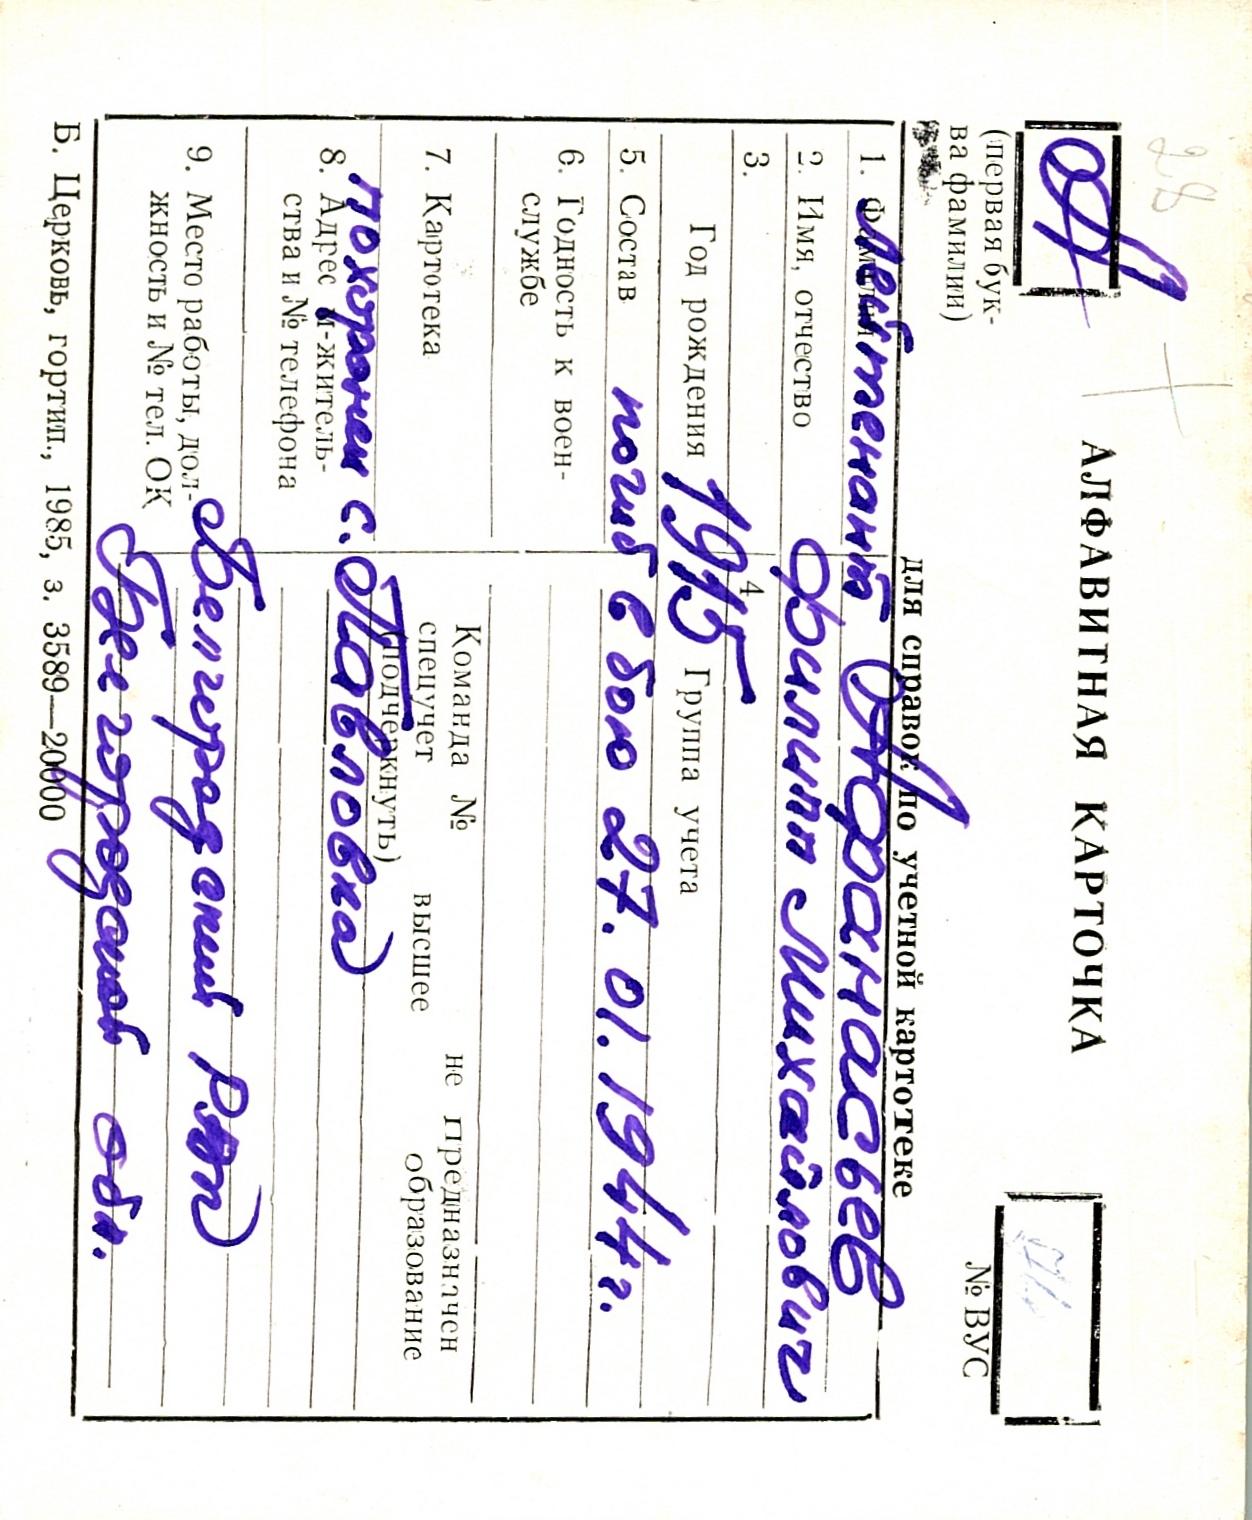 28
А
(первая бук-
ва фамилии)
АЛФАВИТНАЯ КАРТОЧКА
для справок по учетной картотеке
№ ВУС
1. Фамилия Лейтенант Афанасьев
2. Имя, отчество Филипп Михайлович
3.
Год рождения 1915 4 Группа учета
5. Состав погиб в бою 27.01.1944г.
6. Годность к воен-
службе
7. Картотека
Команда № не предназначен
спецучет высшее образование
(подчеркнуть)
похоронен с. Павловка
8. Адрес м-житель-
ства и № телефона
9. Место работы, дол-
жность и № тел. ОК
Белгородский РВП
Белгородской обл.
Б. Церковь, гортип., 1985, з. 3589—20000